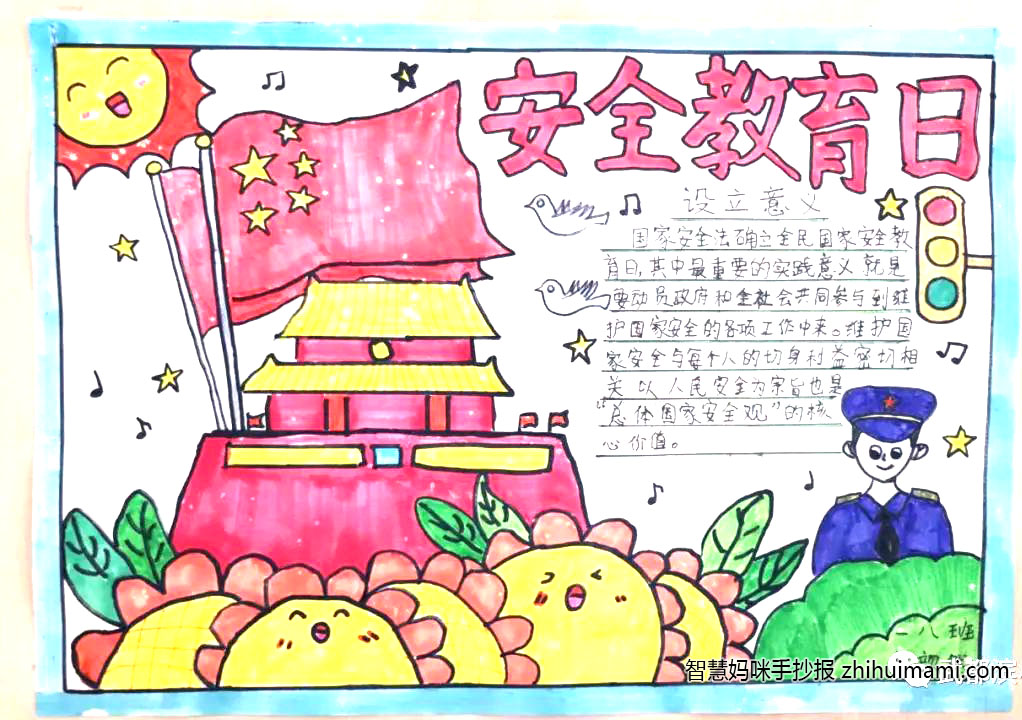 安全教育日
设立意义
国家安全法确立全民国家安全教
育日,其中最重要的实践意义就是
要动员政府和全社会共同参与到维
护国家安全的各项工作中来。维护国
家安全与每个人的切身利益密切相
关以人民安全为宗旨也是
“总体国家安全观”的核
心价值。
一八班
智慧妈咪手抄报 zhihuimami.com